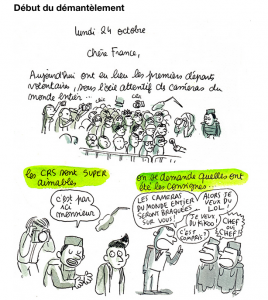 Début du démantèlement
lundi 24 octobre
Chère France,
Aujourd'hui ont eu lieu les premiers départs
volontaires, sous l'œil attentif des caméras du
monde entier...
clic
clic
les CRS sont SUPER
aimables
c'est par
ici
monsieur
on se demande quelles ont
été les consignes...
LES CAMERAS
DU MONDE ENTIER
SERONT BRAQUÉES
SUR VOUS !
ALORS JE
VEUX DU
LOL !
JE VEUX
DU KIKOO !
C'EST
COMPRIS ?
CHEF
OUI
CHEF !